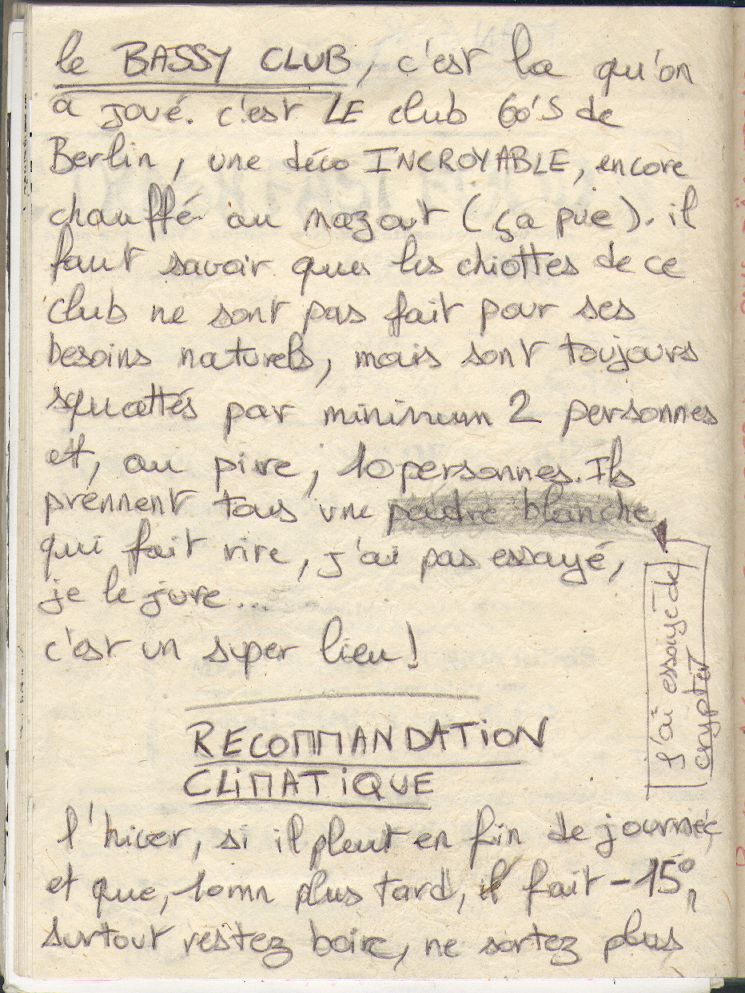 le BASSY CLUB, c'est la qu'on
a joué. c'est LE club 60's de
Berlin, une déco INCROYABLE, encore
chauffé au mazout (ça pue). il
faut savoir que les chiottes de ce
club ne sont pas fait pour ses
besoins naturels, mais sont toujours
squattés par minimum 2 personnes
et, au pire, 10 personnes. Ils
prennent tous une poudre blanche
qui fait rire, j'ai pas essayé,
je le jure...
c'est un super lieu!
j'ai essayé de
crypter
RECOMMANDATION
CLIMATIQUE
l'hiver, si il pleut en fin de journée
et que, 10mn plus tard, il fait -15°,
surtout restez boire, ne sortez plus